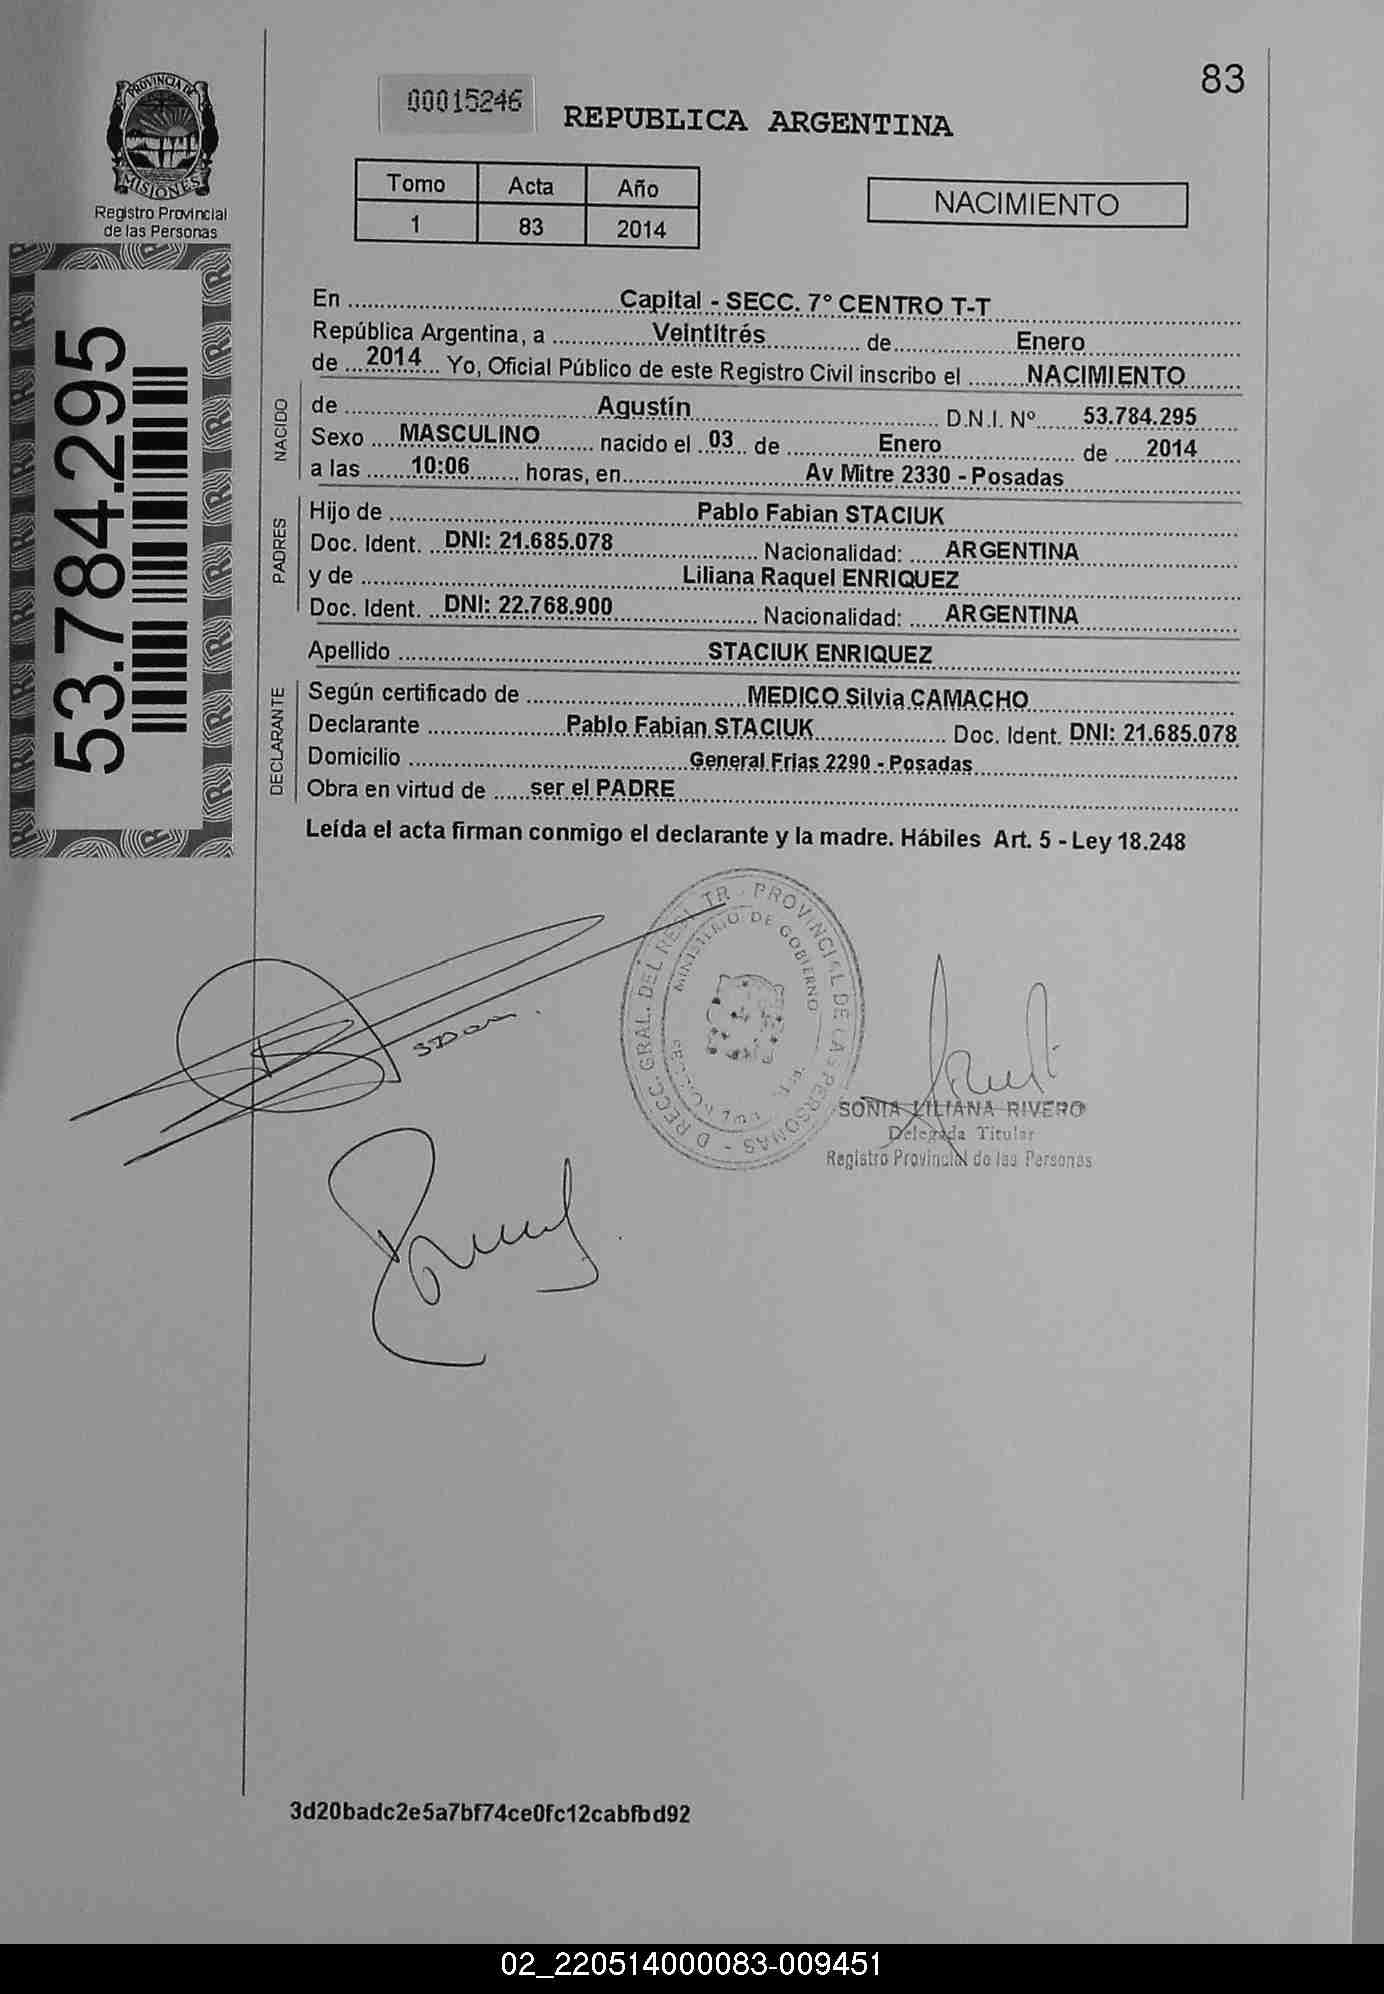 83
00015246
REPUBLICA ARGENTINA
PROVINCIA DE
MISIONES
Registro Provincial
de las Personas
Tomo Acta Año
1 83 2014
NACIMIENTO
53.784.295
En Capital - SECC. 7° CENTRO T-T
República Argentina, a Veintitrés de Enero
de 2014 Yo, Oficial Público de este Registro Civil inscribo el NACIMIENTO
NACIDO
de Agustín D.N.I. Nº 53.784.295
Sexo MASCULINO nacido el 03 de Enero de 2014
a las 10:06 horas, en Av Mitre 2330 - Posadas
PADRES
Hijo de Pablo Fabian STACIUK
Doc. Ident. DNI: 21.685.078 Nacionalidad: ARGENTINA
y de Liliana Raquel ENRIQUEZ
Doc. Ident. DNI: 22.768.900 Nacionalidad: ARGENTINA
Apellido STACIUK ENRIQUEZ
DECLARANTE
Según certificado de MEDICO Silvia CAMACHO
Declarante Pablo Fabian STACIUK Doc. Ident. DNI: 21.685.078
Domicilio General Frias 2290 - Posadas
Obra en virtud de ser el PADRE
Leída el acta firman conmigo el declarante y la madre. Hábiles Art. 5 - Ley 18.248
GRAL. DEL PROVINCIAL DE LAS PERSONAS
MINISTERIO DE GOBIERNO
SONIA LILIANA RIVERO
Delegada Titular
Registro Provincial de las Personas
3d20badc2e5a7bf74ce0fc12cabfbd92
02_220514000083-009451